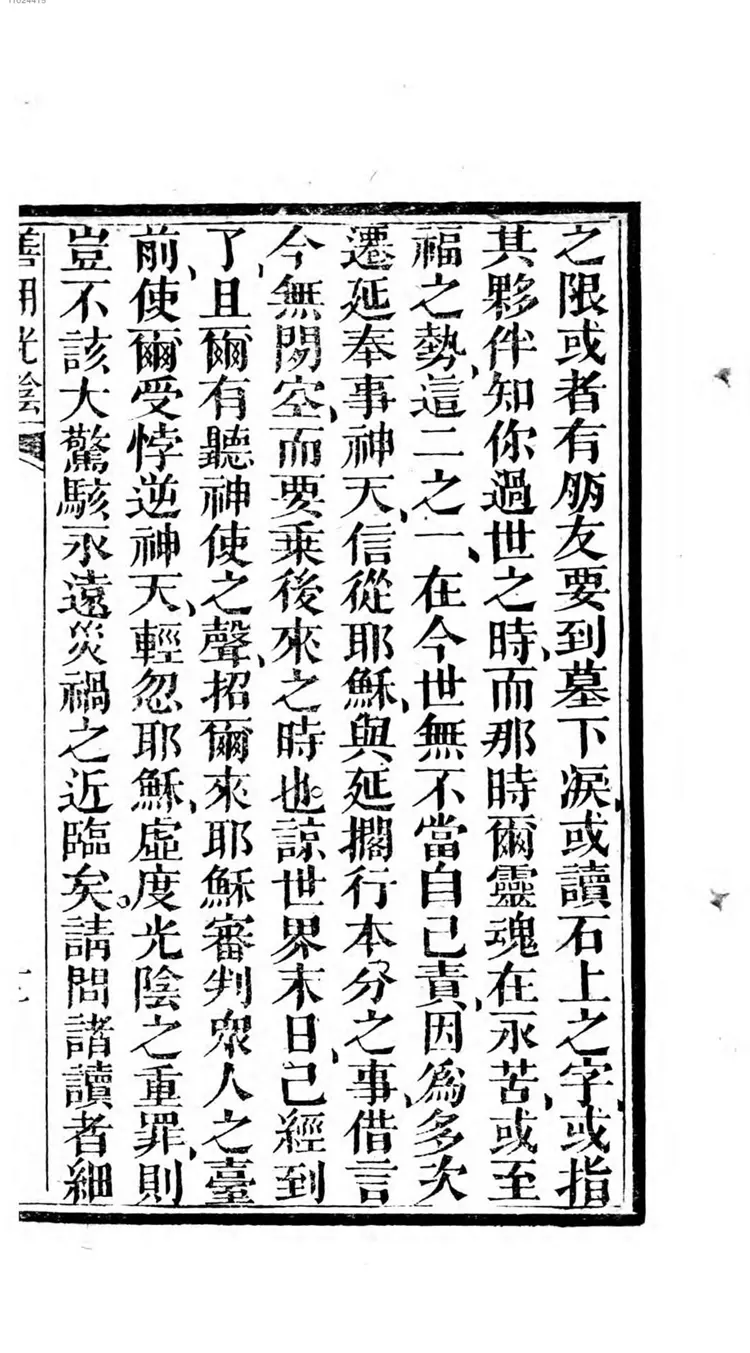 11024419
之限或者有朋友要到墓下淚、或讀石上之字、或指
其夥伴知你過世之時、而那時爾靈魂在永苦、或至
福之勢、這二之一、在今世無不當自己責、因爲多次
遷延奉事神天、信從耶穌、與延擱行本分之事、借言
今無閒空、而要乘後來之時也。諒世界末日、己經到
了、且爾有聽神使之聲、招爾來耶穌審判衆人之臺
前、使爾受悖逆神天、輕忽耶穌、虛度光陰之重罪、則
豈不該大驚駭永遠災禍之近臨矣。請問諸讀者細
善用光陰